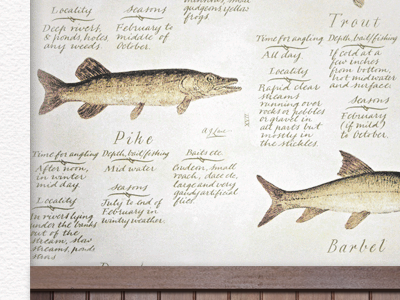 Locality
Deep rivers,
& ponds, holes,
any weeds.
Seasons
February to
middle of
October.
small
gudgeons yellow
frogs.
Trout
Time for angling
All day.
Locality
Rapid clear
streams
running over
rocks or pebbles
or gravel in
all parts but
mostly in
the stickles.
Depth, bait fishing
If cold at a
few inches
from bottom,
hot midwater
and surface.
Seasons
February
(if mild)
to October.
XXII
Pike
Time for angling
After noon,
in winter
mid day.
Locality
In rivers lying
under the banks
out of the
stream, slow
streams, ponds
Depth, bait fishing
Mid water
Seasons
July to end of
February in
wintry weather.
Baits etc.
Gudgeon, small
roach, dace etc.
large and very
gaudy artificial
flies.
Barbel